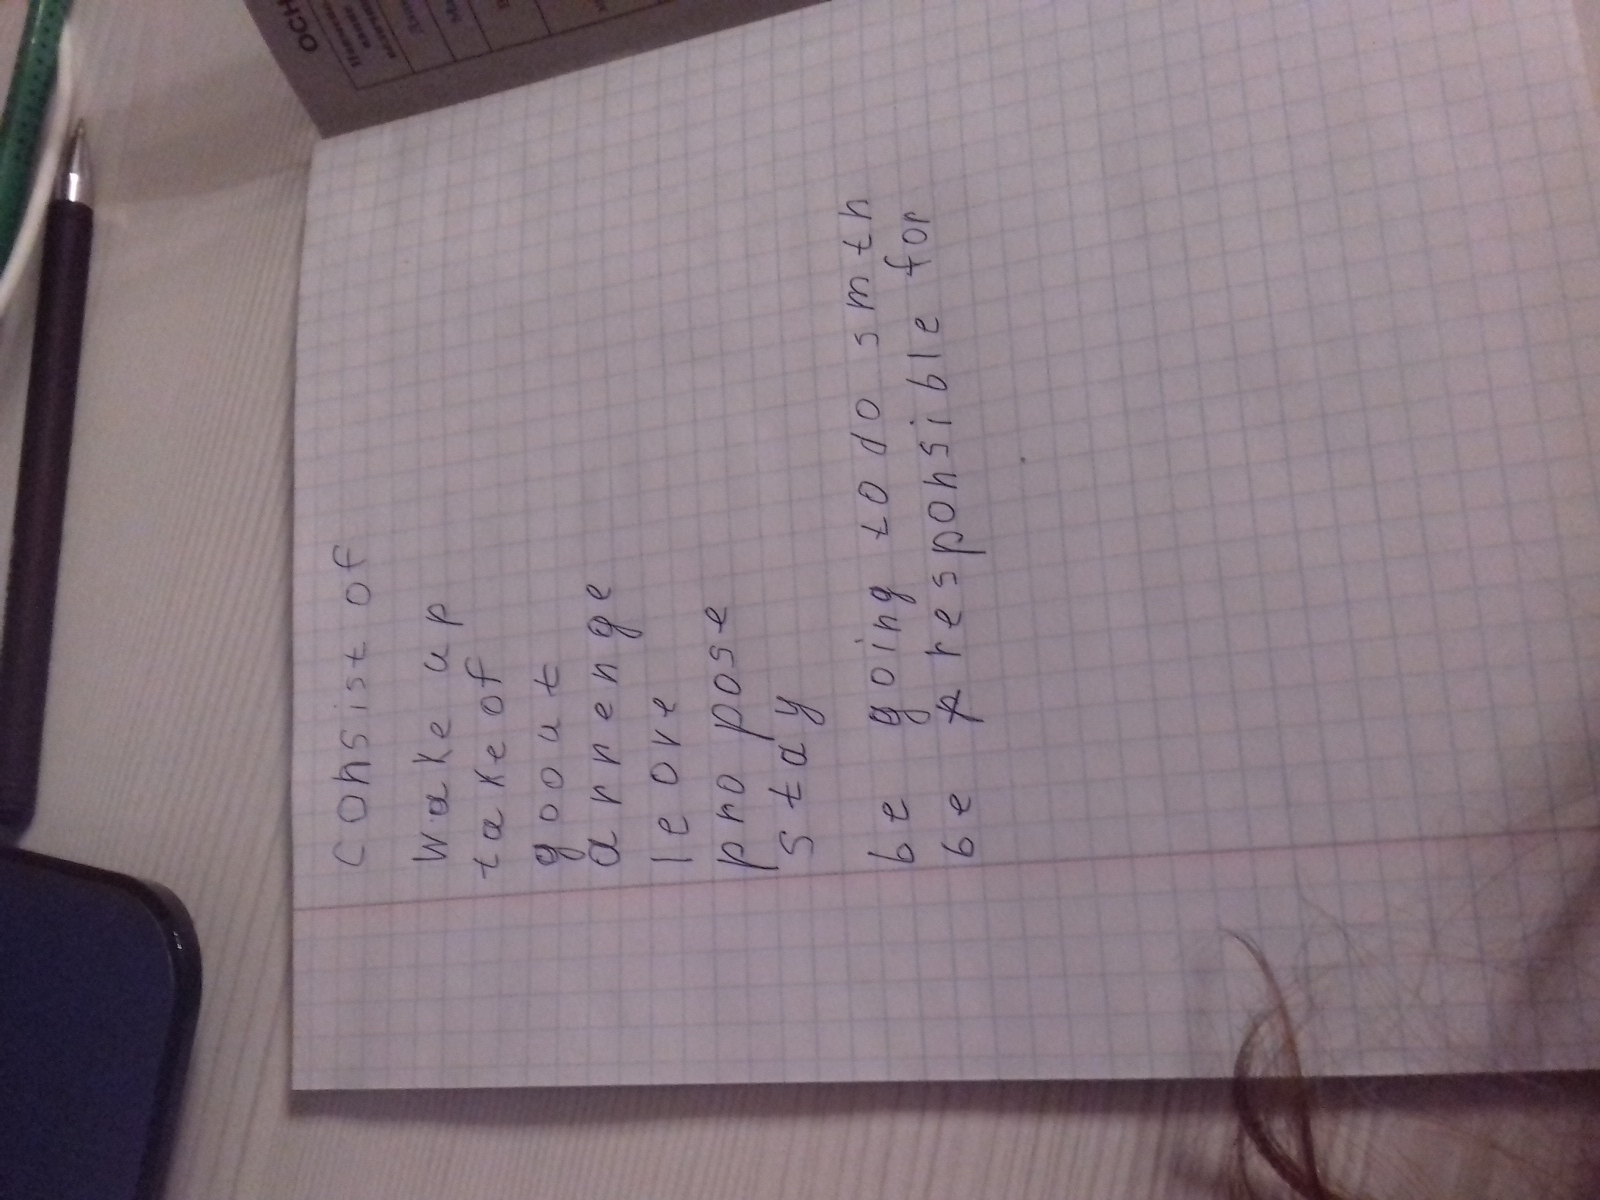 consist of
wake up
take of
go out
arrenge
leove
propose
stay
be going to do smth
be responsible for
ОСН